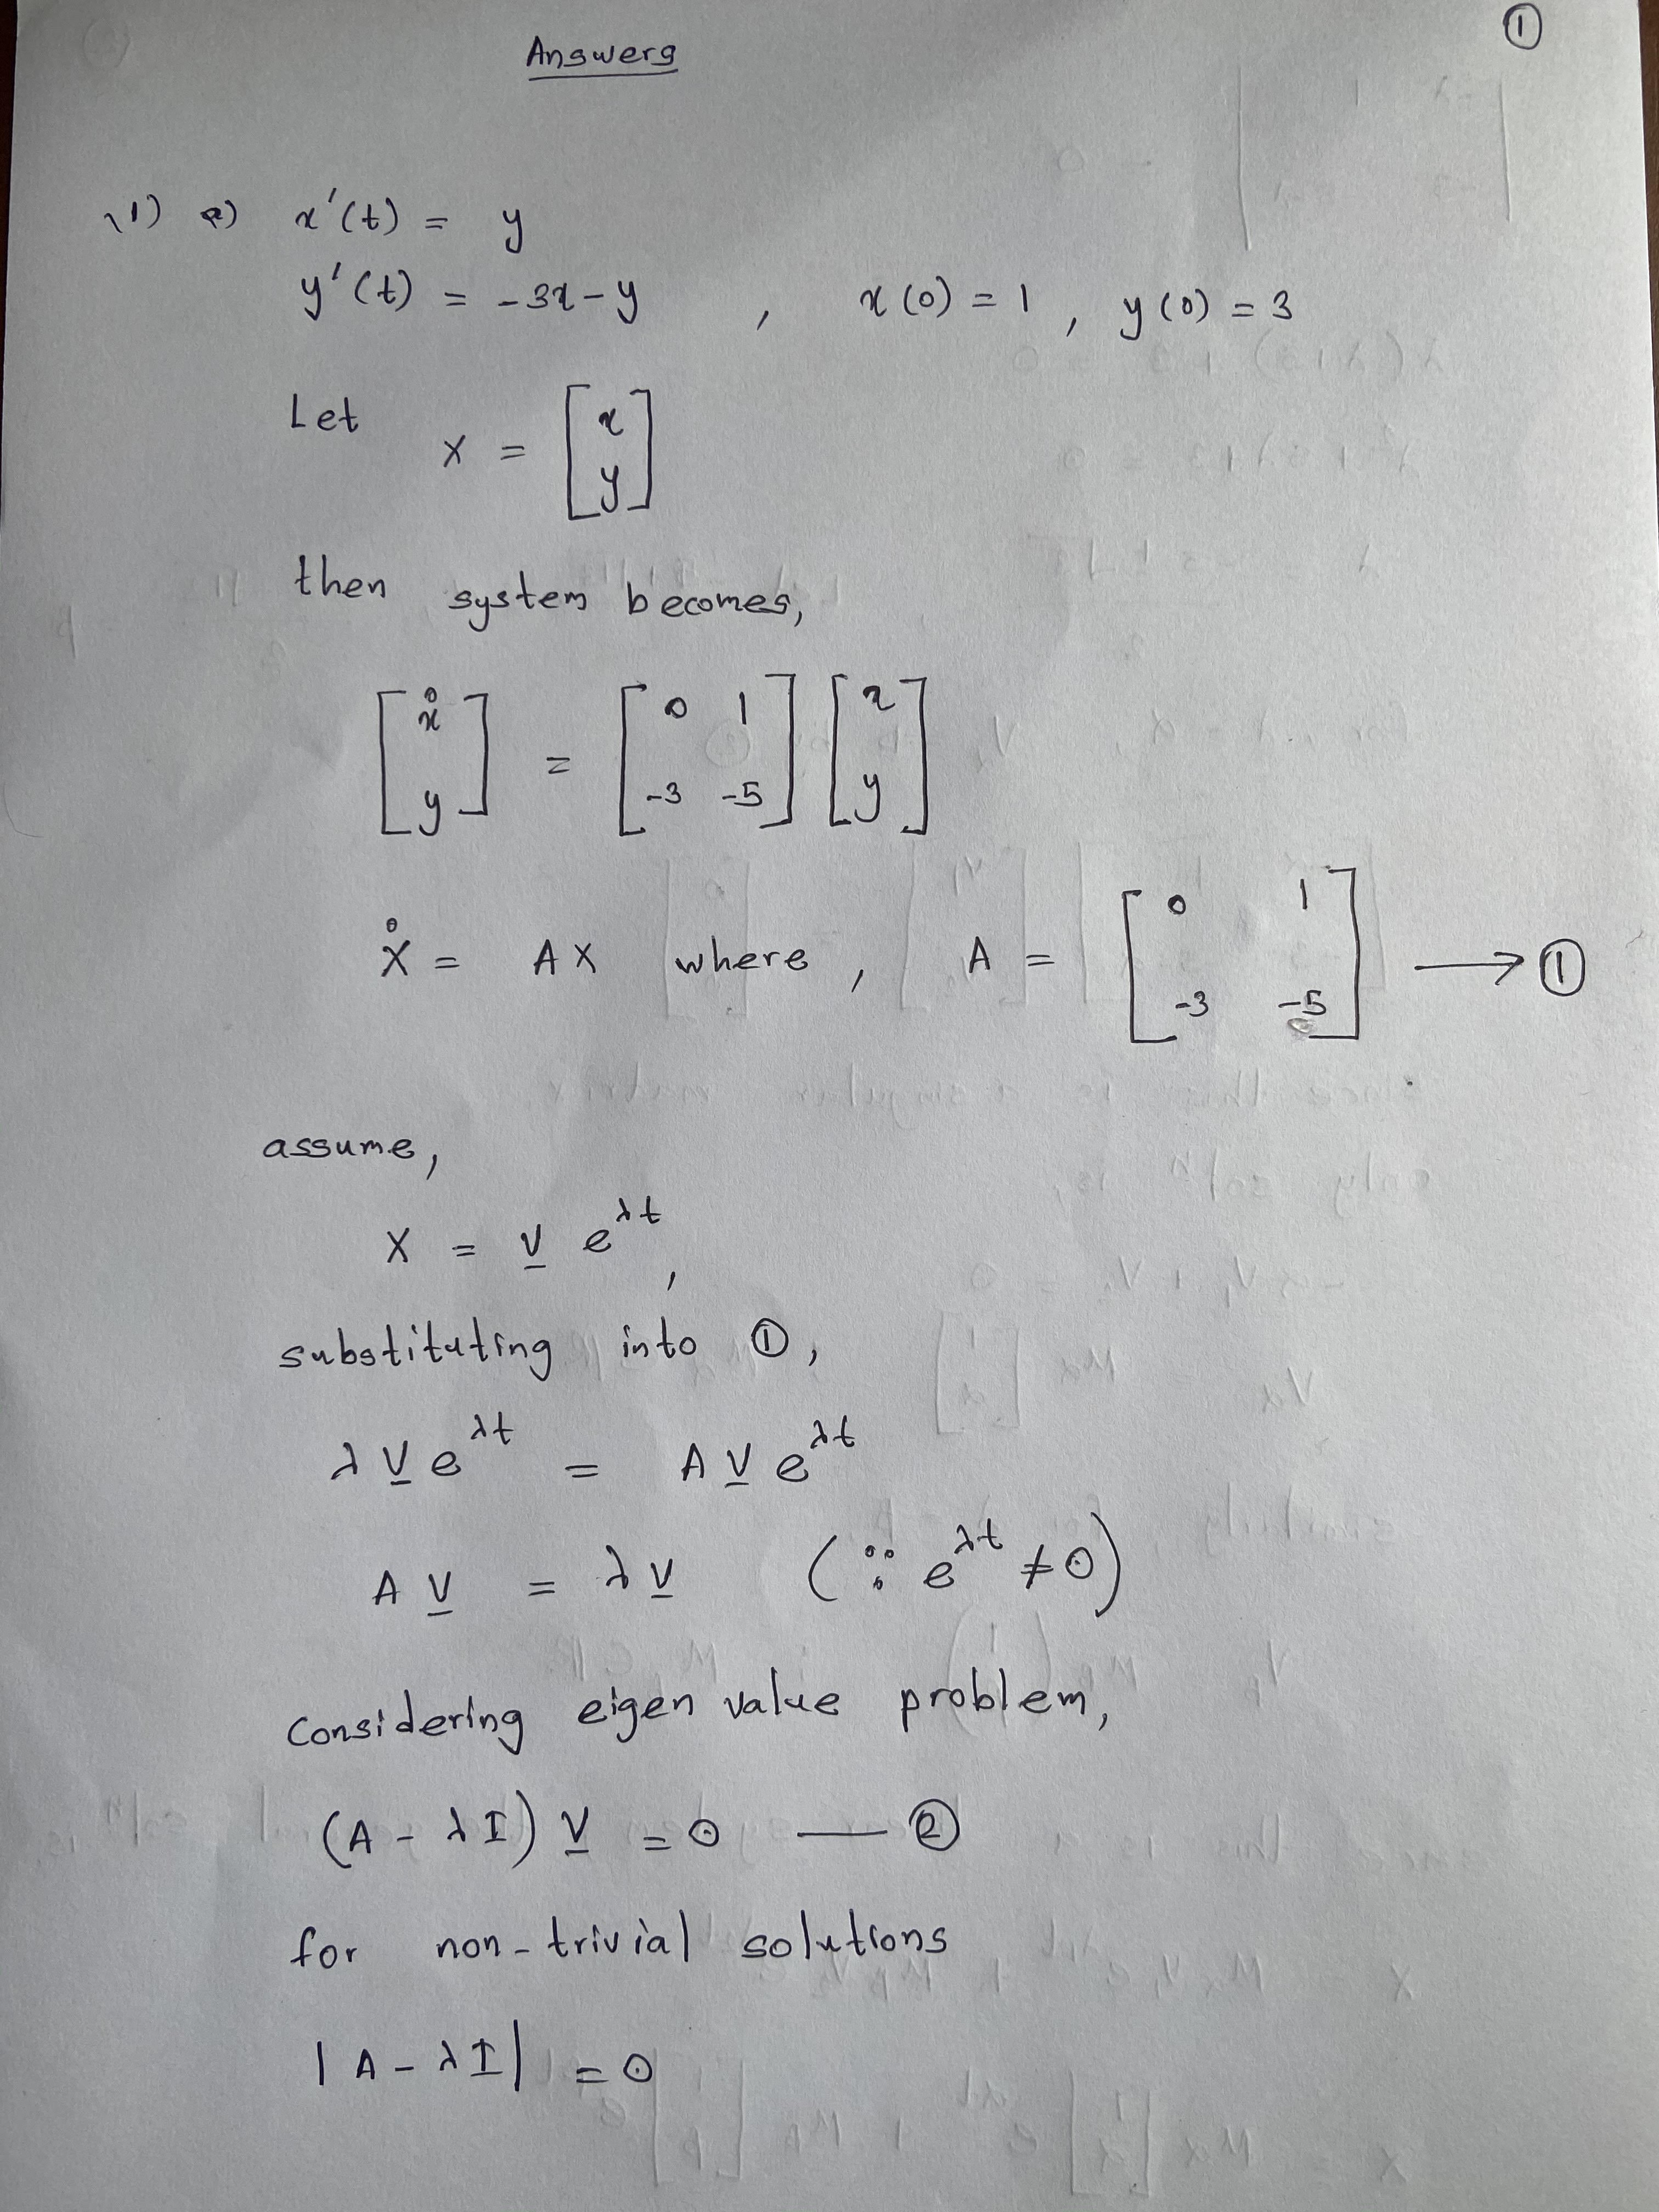 ①
Answers
1) a) x'(t) = y
y'(t) = -3x-y , x(0) = 1 , y(0) = 3
Let X = [x y]
then system becomes,
[ẋ y] = [0 1 -3 -5] [x y]
Ẋ = AX where , A = [0 1 -3 -5] → ①
assume,
X = V e^λt,
substituting into ①,
λ V e^λt = A V e^λt
A V = λ V (∵ e^λt ≠ 0)
Considering eigen value problem,
(A - λI) V = 0 — ②
for non-trivial solutions
|A - λI| = 0